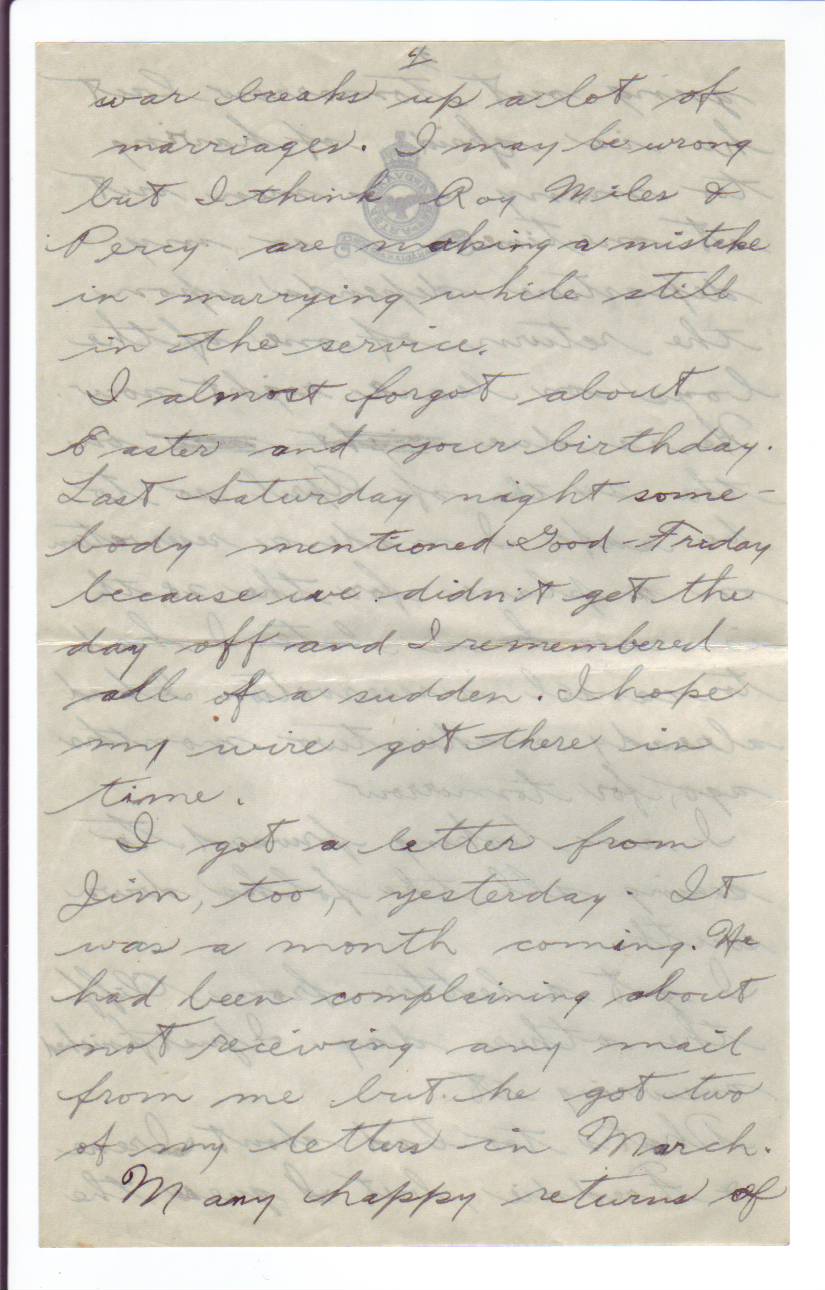 4
war breaks up a lot of
marriages. I may be wrong
but I think Roy Miles &
Percy are making a mistake
in marrying while still
in the service.
I almost forgot about
Easter and your birthday.
Last Saturday night some-
body mentioned Good-Friday
because we didn't get the
day off and I remembered
all of a sudden. I hope
my wire got there in
time.
I got a letter from
Jim, too, yesterday. It
was a month coming. He
had been complaining about
not receiving any mail
from me but he got two
of my letters in March.
Many happy returns of